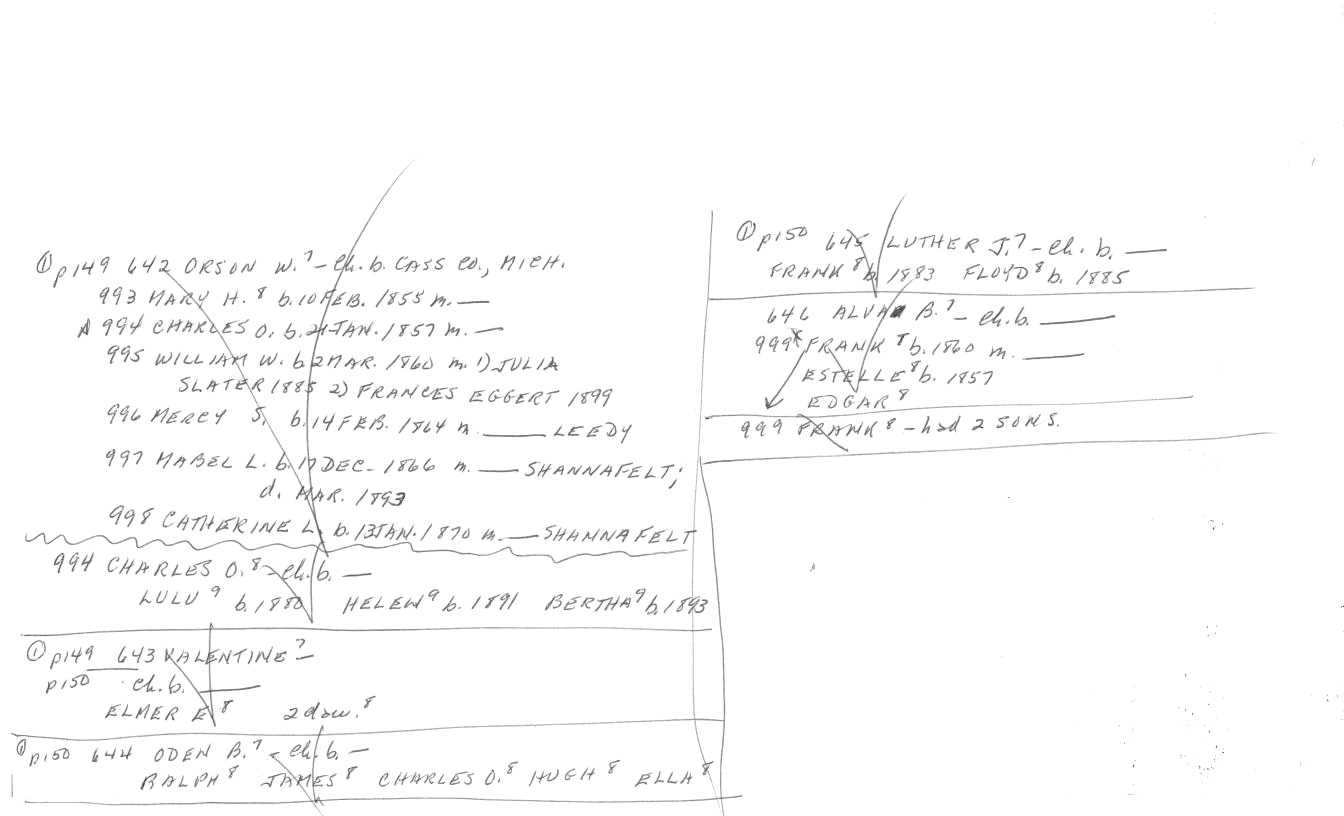 ① p149 642 ORSON W.⁷ - Ch. b. CASS CO., MICH.
993 MARY H.⁸ b. 10 FEB. 1855 m. —
994 CHARLES O. b. 24 JAN. 1857 m. —
995 WILLIAM W. b. 2 MAR. 1860 m. 1) JULIA
SLATER 1885 2) FRANCES EGGERT 1899
996 MERCY S. b. 14 FEB. 1864 m. — LEEDY
997 MABEL L. b. 17 DEC. 1866 m. — SHANNAFELT;
d. MAR. 1893
998 CATHERINE L. b. 13 JAN. 1870 m. — SHANNAFELT
994 CHARLES O.⁸ - Ch. b. —
LULU⁹ b. 1880 HELEN⁹ b. 1891 BERTHA⁹ b. 1893
① p149 643 VALENTINE⁷ -
p150 Ch. b. —
ELMER E⁸ 2 dau.⁸
① p150 644 ODEN B.⁷ - Ch. b. —
RALPH⁸ JAMES⁸ CHARLES O.⁸ HUGH⁸ ELLA⁸
① p150 645 LUTHER J.⁷ - Ch. b. —
FRANK⁸ b. 1883 FLOYD⁸ b. 1885
646 ALVA B.⁷ - Ch. b. —
999 FRANK⁸ b. 1860 m. —
ESTELLE⁸ b. 1857
EDGAR⁸
999 FRANK⁸ - had 2 SONS.